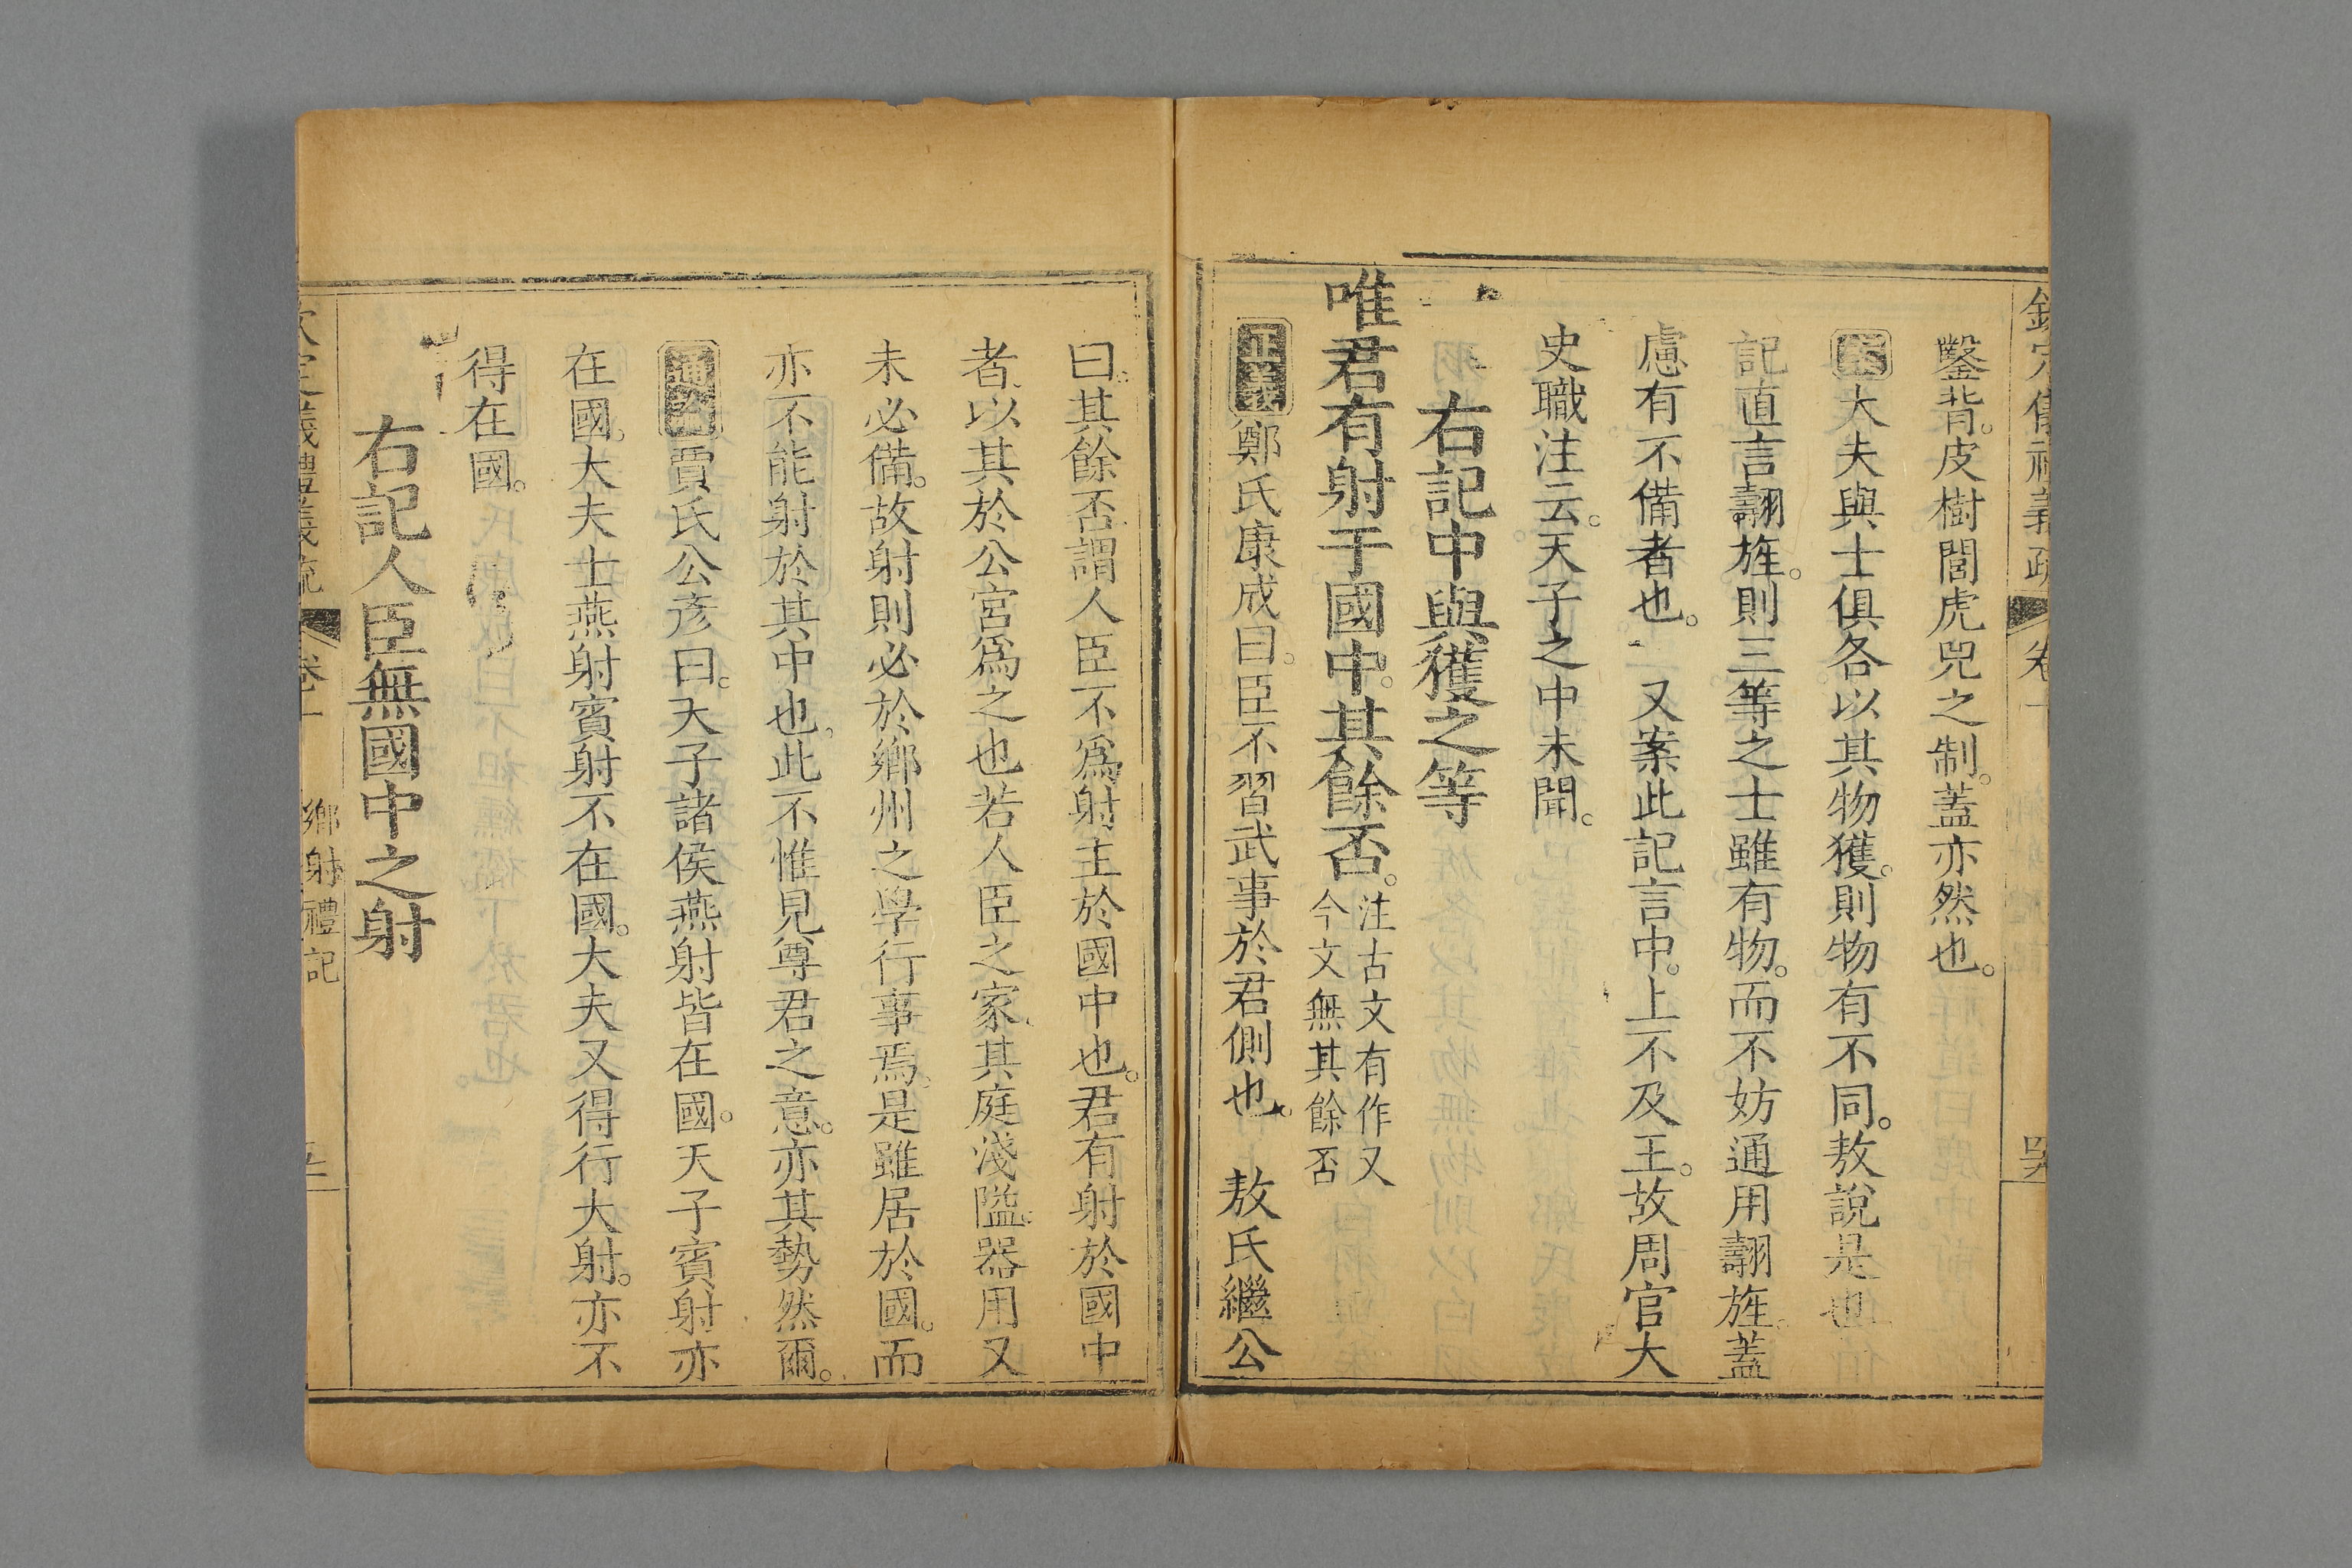 鑿背。皮樹閭虎兕之制。蓋亦然也。
案大夫與士俱各以其物獲。則物有不同。敖說是也
記直言翿旌。則三等之士雖有物。而不妨通用翿旌。蓋
慮有不備者也。 又案此記言中。上不及王。故周官大
史職注云。天子之中未聞。
右記中與獲之等
唯君有射于國中。其餘否。注古文有作又
今文無其餘否
正義鄭氏康成曰。臣不習武事於君側也。 敖氏繼公
曰。其餘否。謂人臣不爲射主於國中也。君有射於國中
者。以其於公宮爲之也若人臣之家。其庭淺隘。器用又
未必備。故射則必於鄉州之學行事焉。是雖居於國。而
亦不能射於其中也。此不惟見尊君之意。亦其勢然爾。
通論賈氏公彥曰。天子諸侯燕射皆在國。天子賓射亦
在國。大夫士燕射賓射不在國。大夫又得行大射。亦不
得在國。
右記人臣無國中之射
鄉射禮記